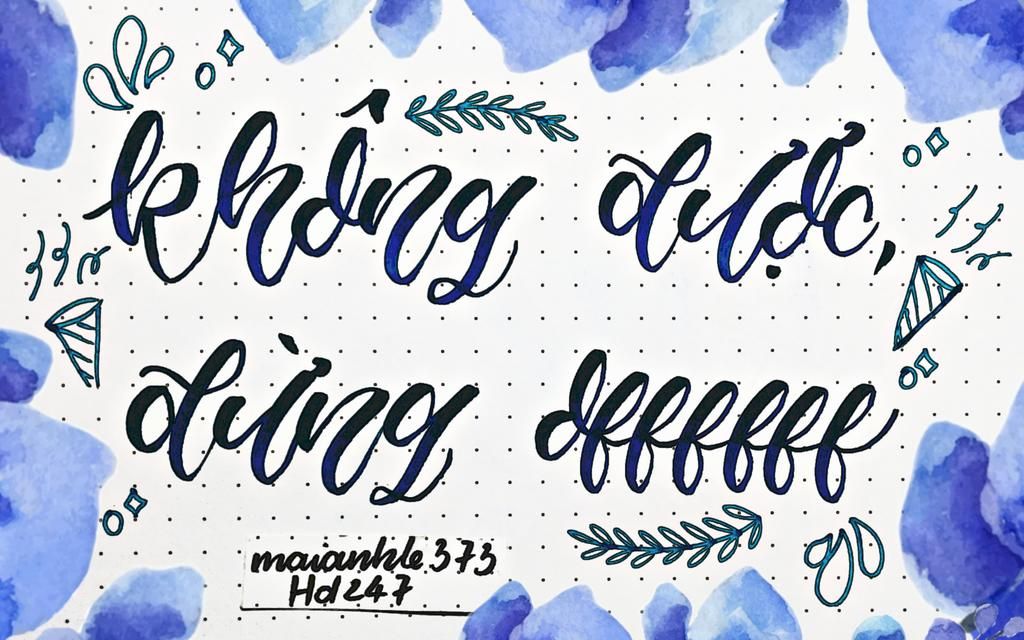 không dược,
dừng dffffff
maianhle373
Hd247